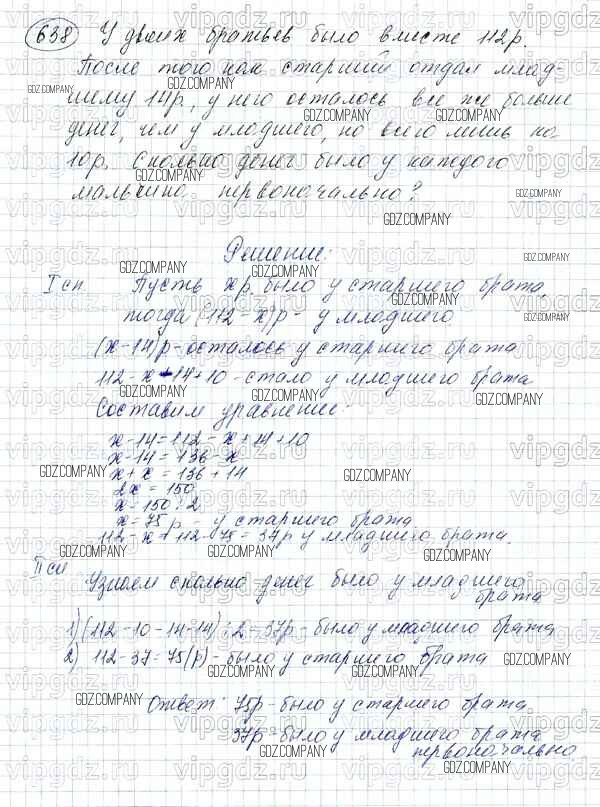 638 У двоих братьев было вместе 112р.
После того как старший отдал млад-
шему 14р, у него осталось все же больше
денег, чем у младшего, но всего лишь на
10р. Сколько денег было у каждого
мальчика первоначально?
Решение:
I сп Пусть x р. было у старшего брата,
тогда (112-x)р- у младшего
(x-14)р-осталось у старшего брата
112-x+14+10-стало у младшего брата
Составим уравнение:
x-14=112-x+14+10
x-14=136-x
x+x=136+14
2x=150
x=150:2
x=75р - у старшего брата
112-x=112-75=37р у младшего брата.
II сп
Узнаем сколько денег было у младшего
брата
1)(112-10-14-14):2=37р-было у младшего брата
2) 112-37=75(р)-было у старшего брата
Ответ: 75р-было у старшего брата
37р-было у младшего брата
первоначально
GDZ.COMPANY
vipgdz.ru